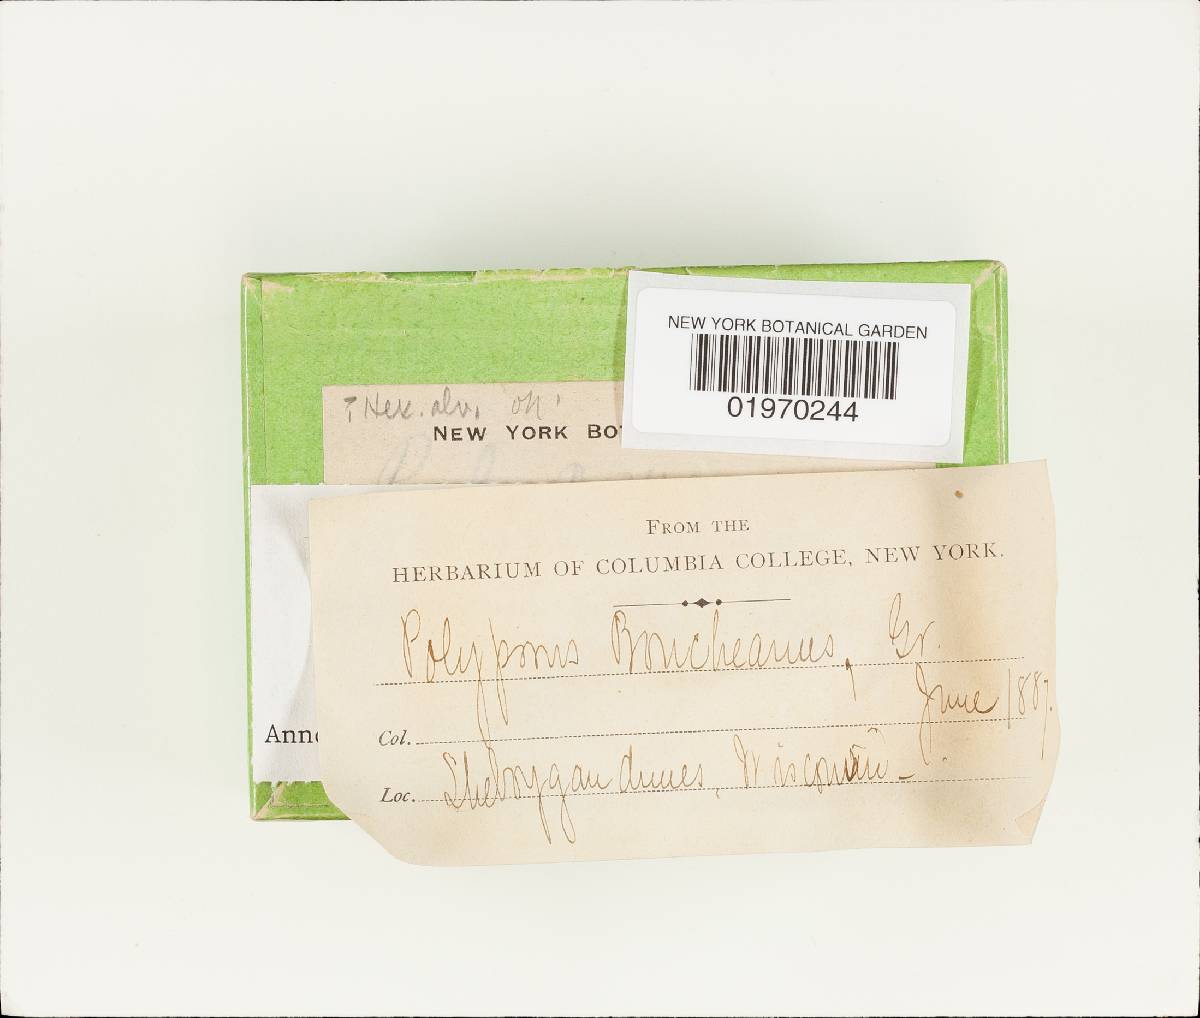 NEW YORK BOTANICAL GARDEN
01970244
? Hex. alv.
NEW YORK BOT
FROM THE
HERBARIUM OF COLUMBIA COLLEGE, NEW YORK.
Polyporus Boucheanus, Gr.
Col. June 1887.
Loc. Sheboygan dunes, Wisconsin -
Anno